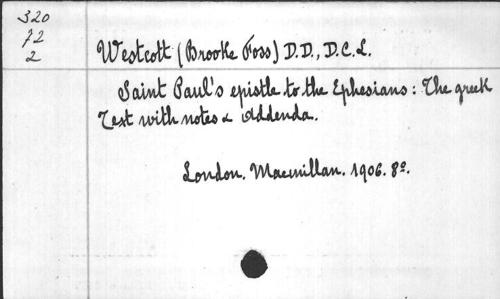 320
72
2
Westcott (Brooke Foss) D.D., D.C.L.
Saint Paul's epistle to the Ephesians: The greek
Text with notes & Addenda.
London. Macmillan. 1906. 8º.